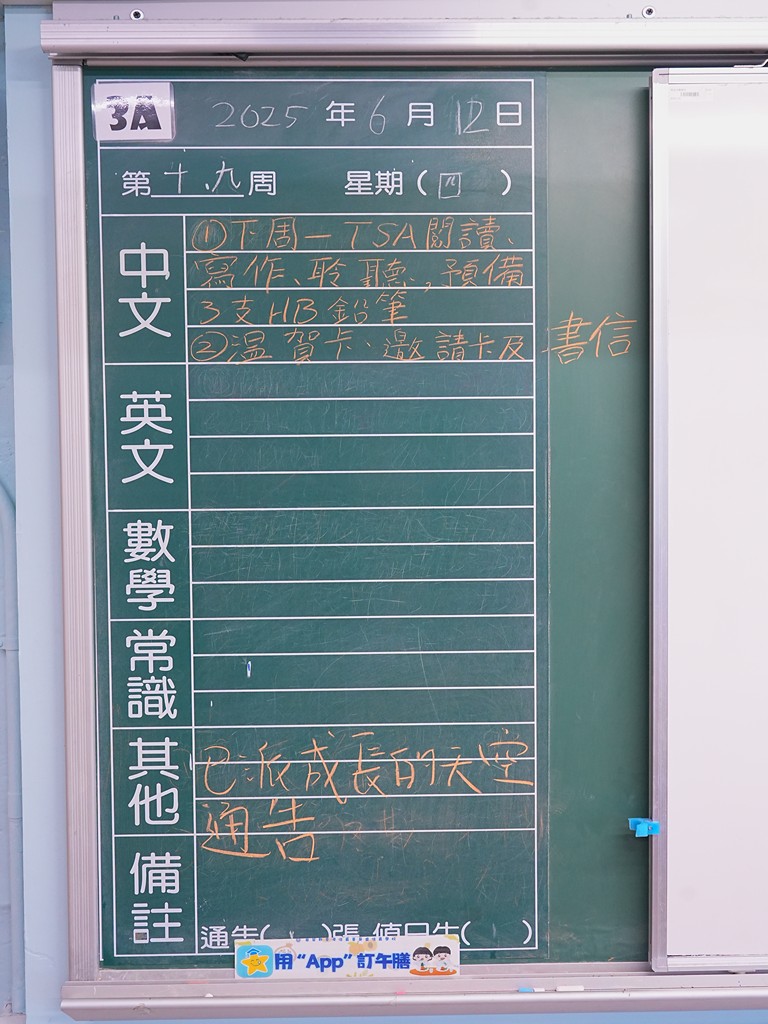 3A
2025 年 6 月 12 日
第十九周 星期(四)
中文
①下周一TSA閱讀、
寫作、聆聽,預備
3支HB鉛筆
②溫賀卡、邀請卡及書信
英文
數學
常識
其他
已派成長的天空
通告
備註
通告( )張 值日生( )
用“App”訂午膳